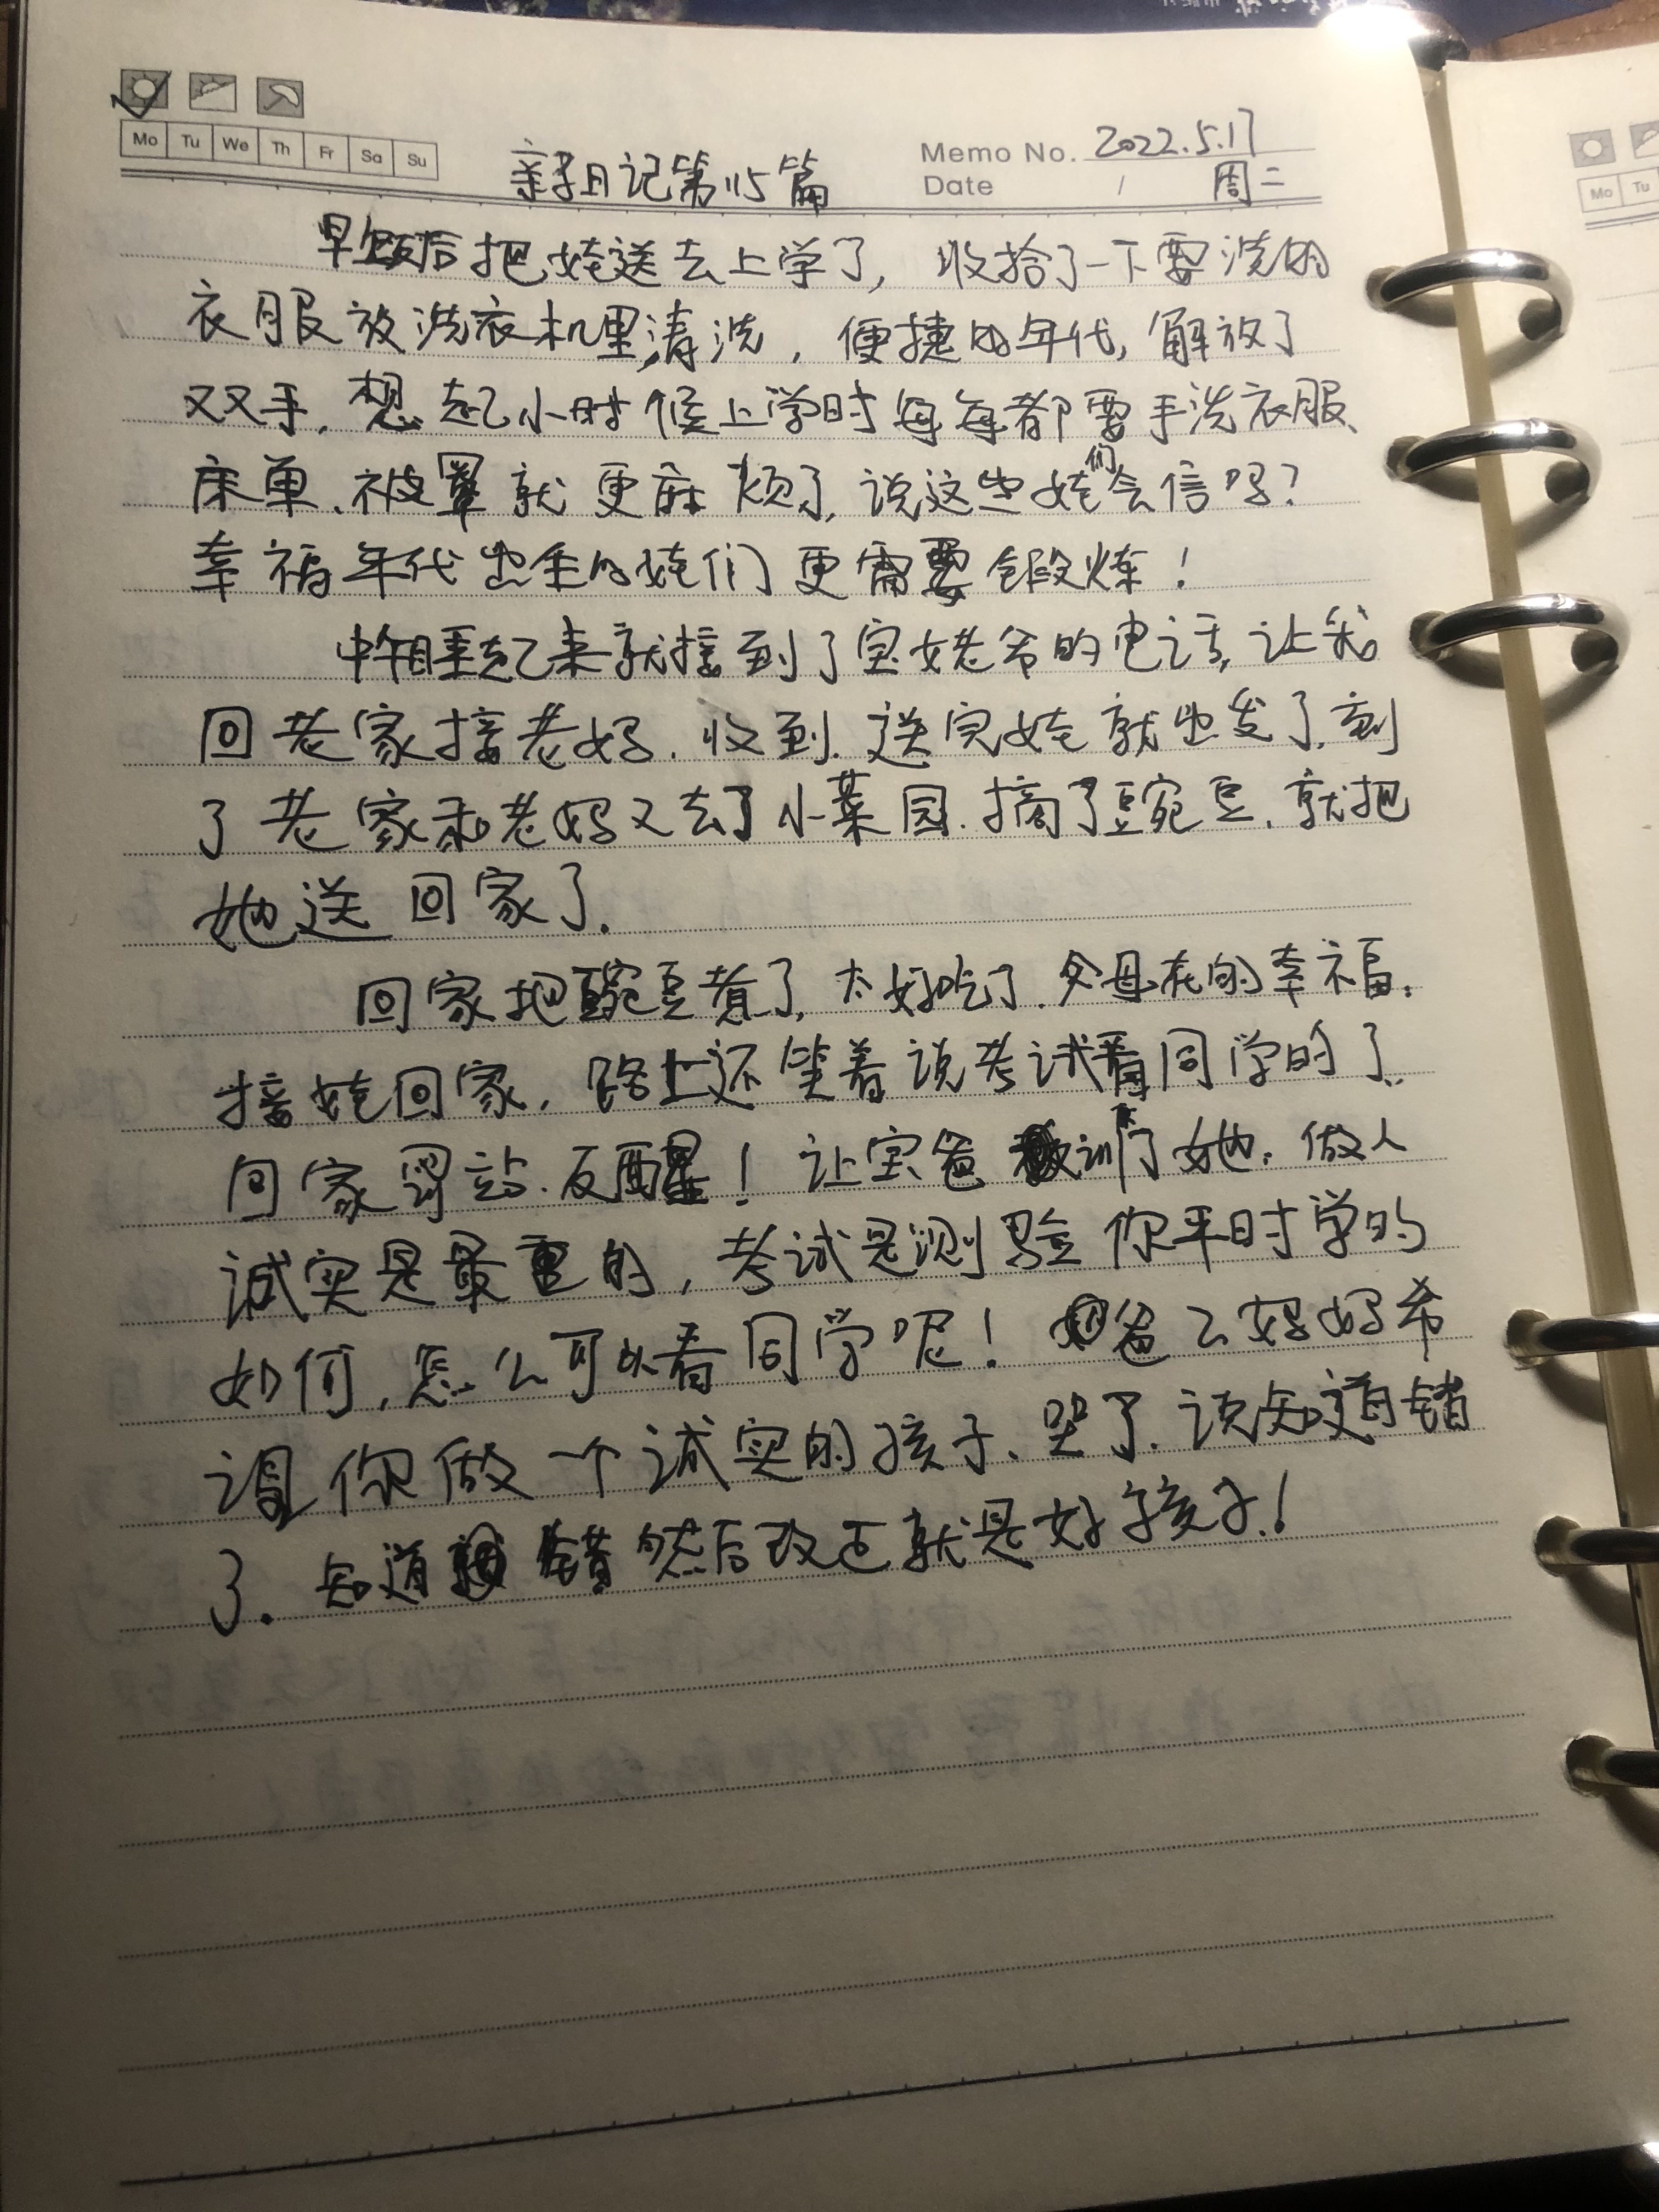 Mo Tu We Th Fr Sa Su
亲子日记第115篇
Memo No. 2022.5.17
Date / 周二
Mo Tu
早饭后把娃送去上学了，收拾了一下要洗的
衣服放洗衣机里清洗，便捷的年代，解放了
双手，想起小时候上学时每每都要手洗衣服、
床单、被罩就更麻烦了，说这些娃们会信吗？
幸福年代出生的娃们更需要锻炼！
中午睡起来就接到了宝姥爷的电话，让我
回老家接老妈．收到．送完娃就出发了，到
了老家和老妈又去了小菜园．摘了豆豌豆，就把
她送回家了．
回家把豌豆煮了，太好吃了．父母在的幸福．
接娃回家，路上还笑着说考试看同学的了．
回家罚站．反醒！让宝爸训了她．做人
诚实是最重的，考试是测验你平时学的
如何，怎么可以看同学呢！爸爸妈妈希
望你做一个诚实的孩子、哭了．说知道错
了．知道错然后改正就是好孩子！